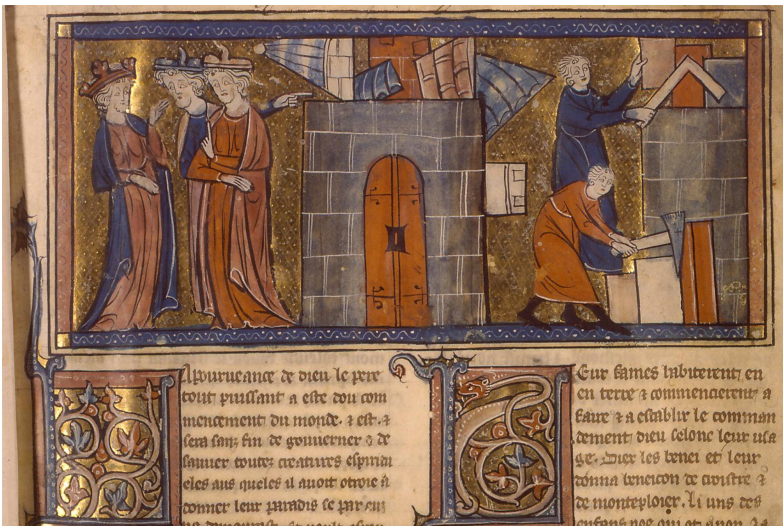 A pourueance de dieu le pere
tout puissant a este dou com
mencement du monde. & est. &
sera sanz fin de gouuerner & de
sauuer toutes creatures espiritu
eles aus queles il auoit otroie a
donner leur paradis se par eux
Leur fames habiterent en
en terre & commencierent a
faire & a establir le comman
dement dieu selonc leur usa
ge. Diex les benei et leur
donna beneicon de croistre &
de monteploier. li uns des